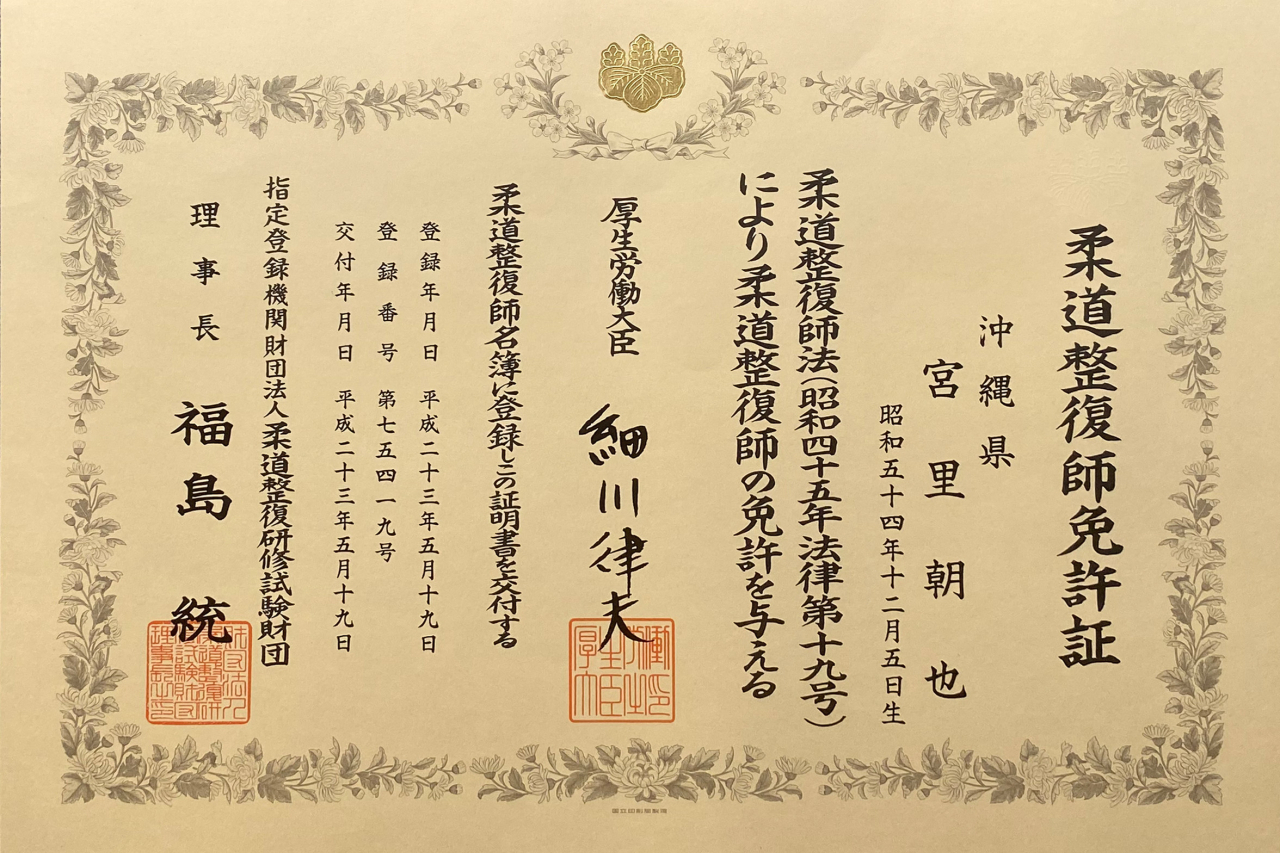 柔道整復師免許証
沖縄県
宮里朝也
昭和五十四年十二月五日生
柔道整復師法(昭和四十五年法律第十九号)
により柔道整復師の免許を与える
厚生労働大臣 細川律夫
柔道整復師名簿に登録しこの証明書を交付する
登録年月日 平成二十三年五月十九日
登録番号 第七五四一九号
交付年月日 平成二十三年五月十九日
指定登録機関財団法人柔道整復研修試験財団
理事長 福島統
国立印刷局製造